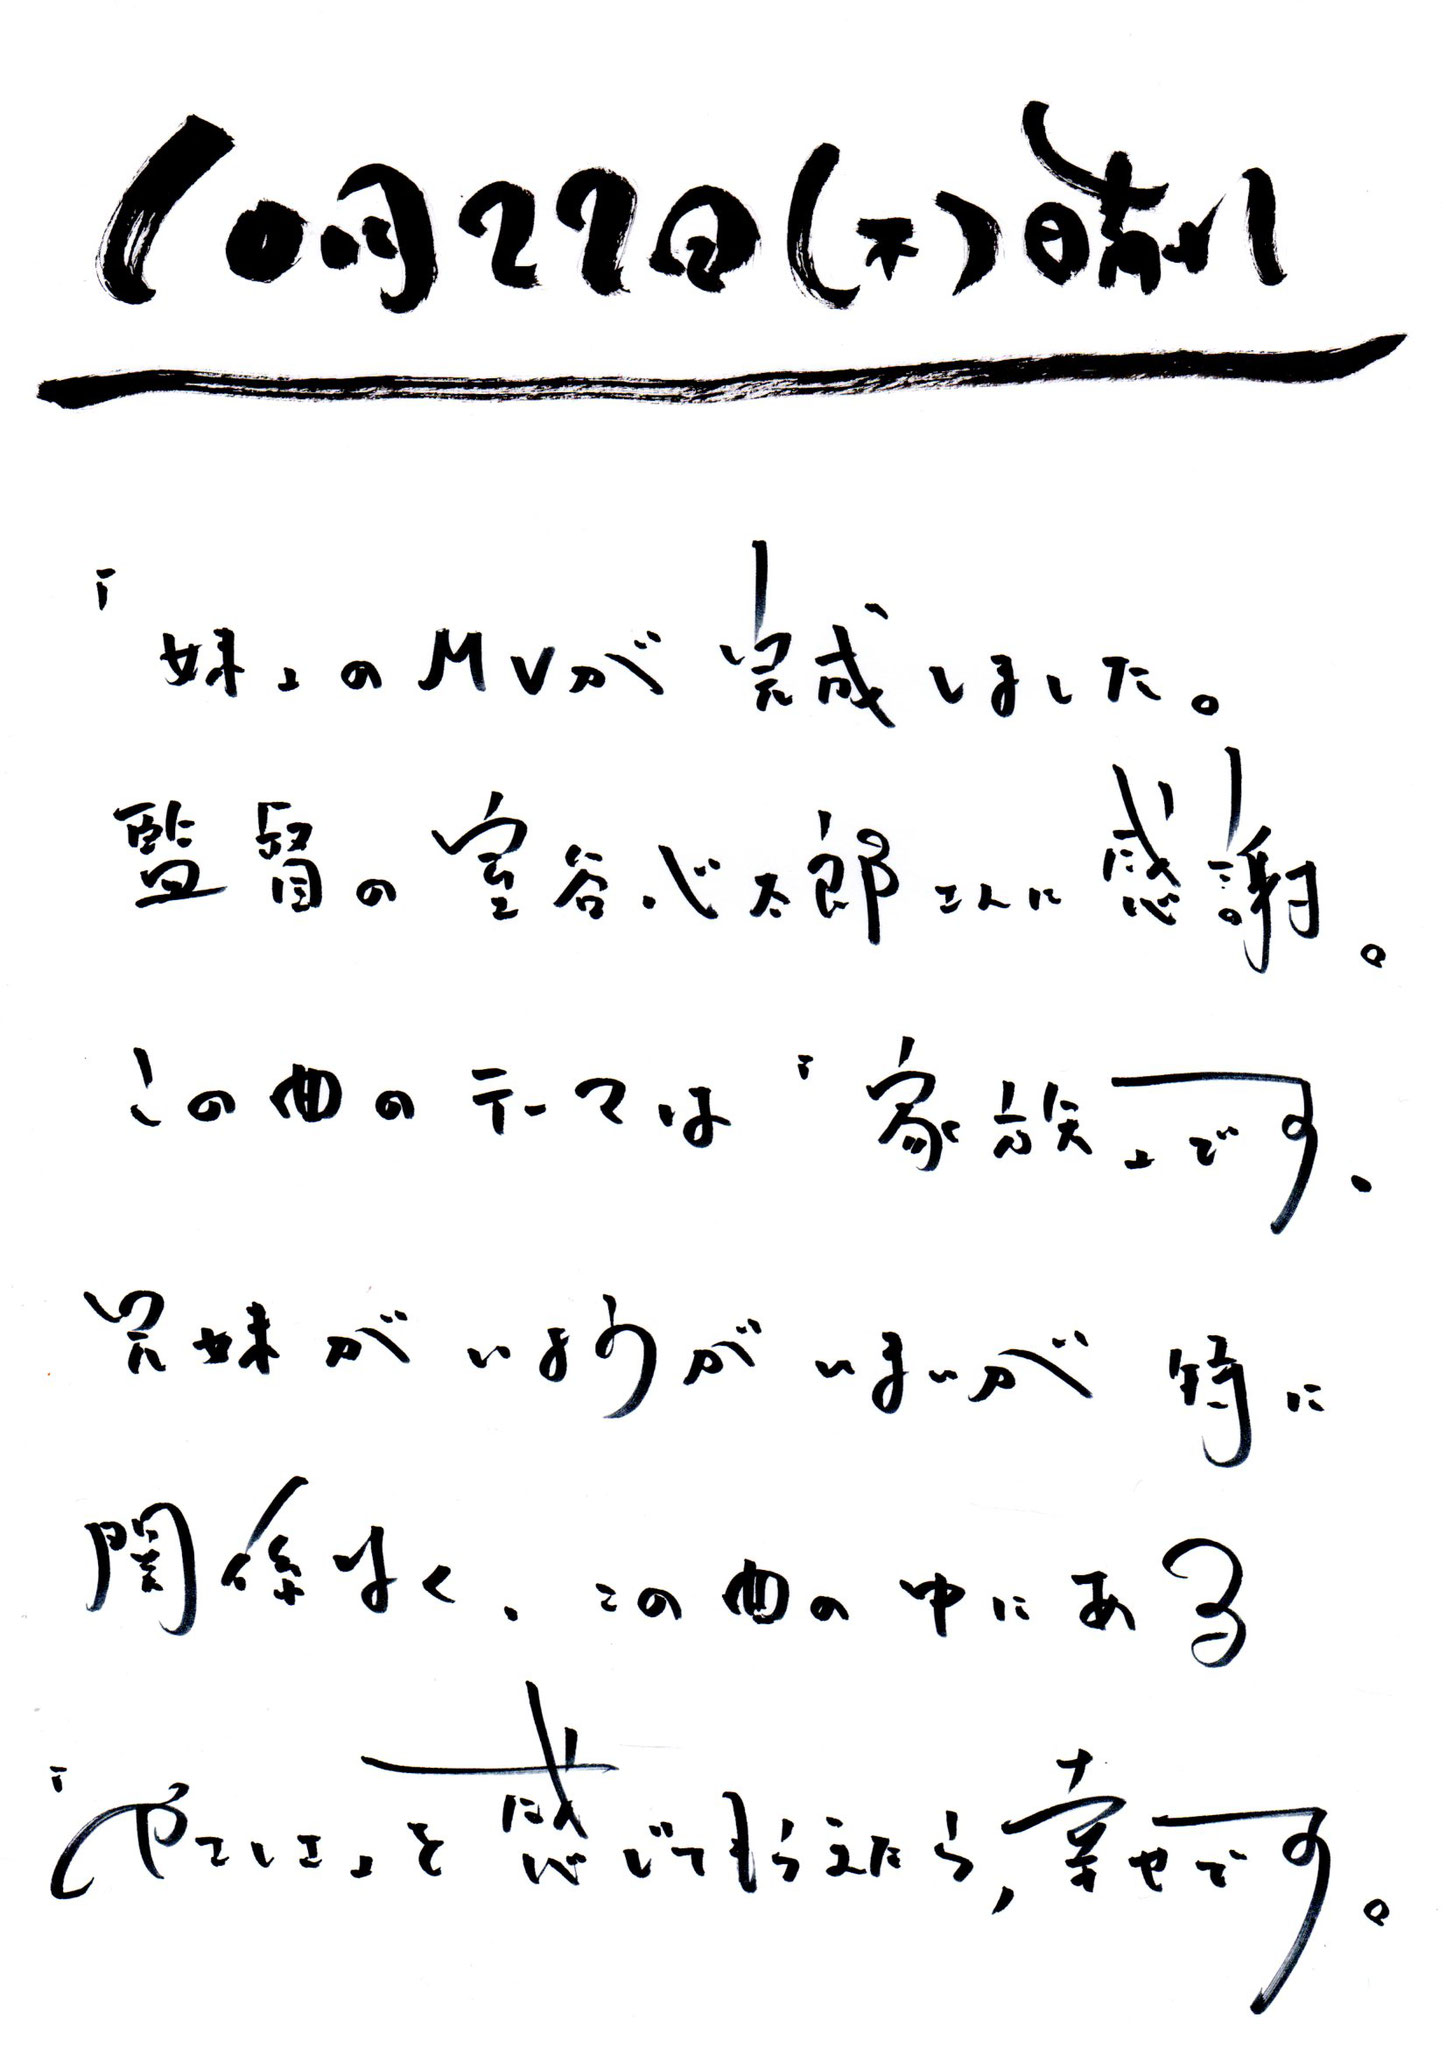 10月22日(木)晴れ
「妹」のMVが完成しました。
監督の室谷心太郎さんに感謝。
この曲のテーマは「家族」です、
兄妹がいようがいまいが特に
関係なく、この曲の中にある
「やさしさ」を感じてもらえたら,幸せです。